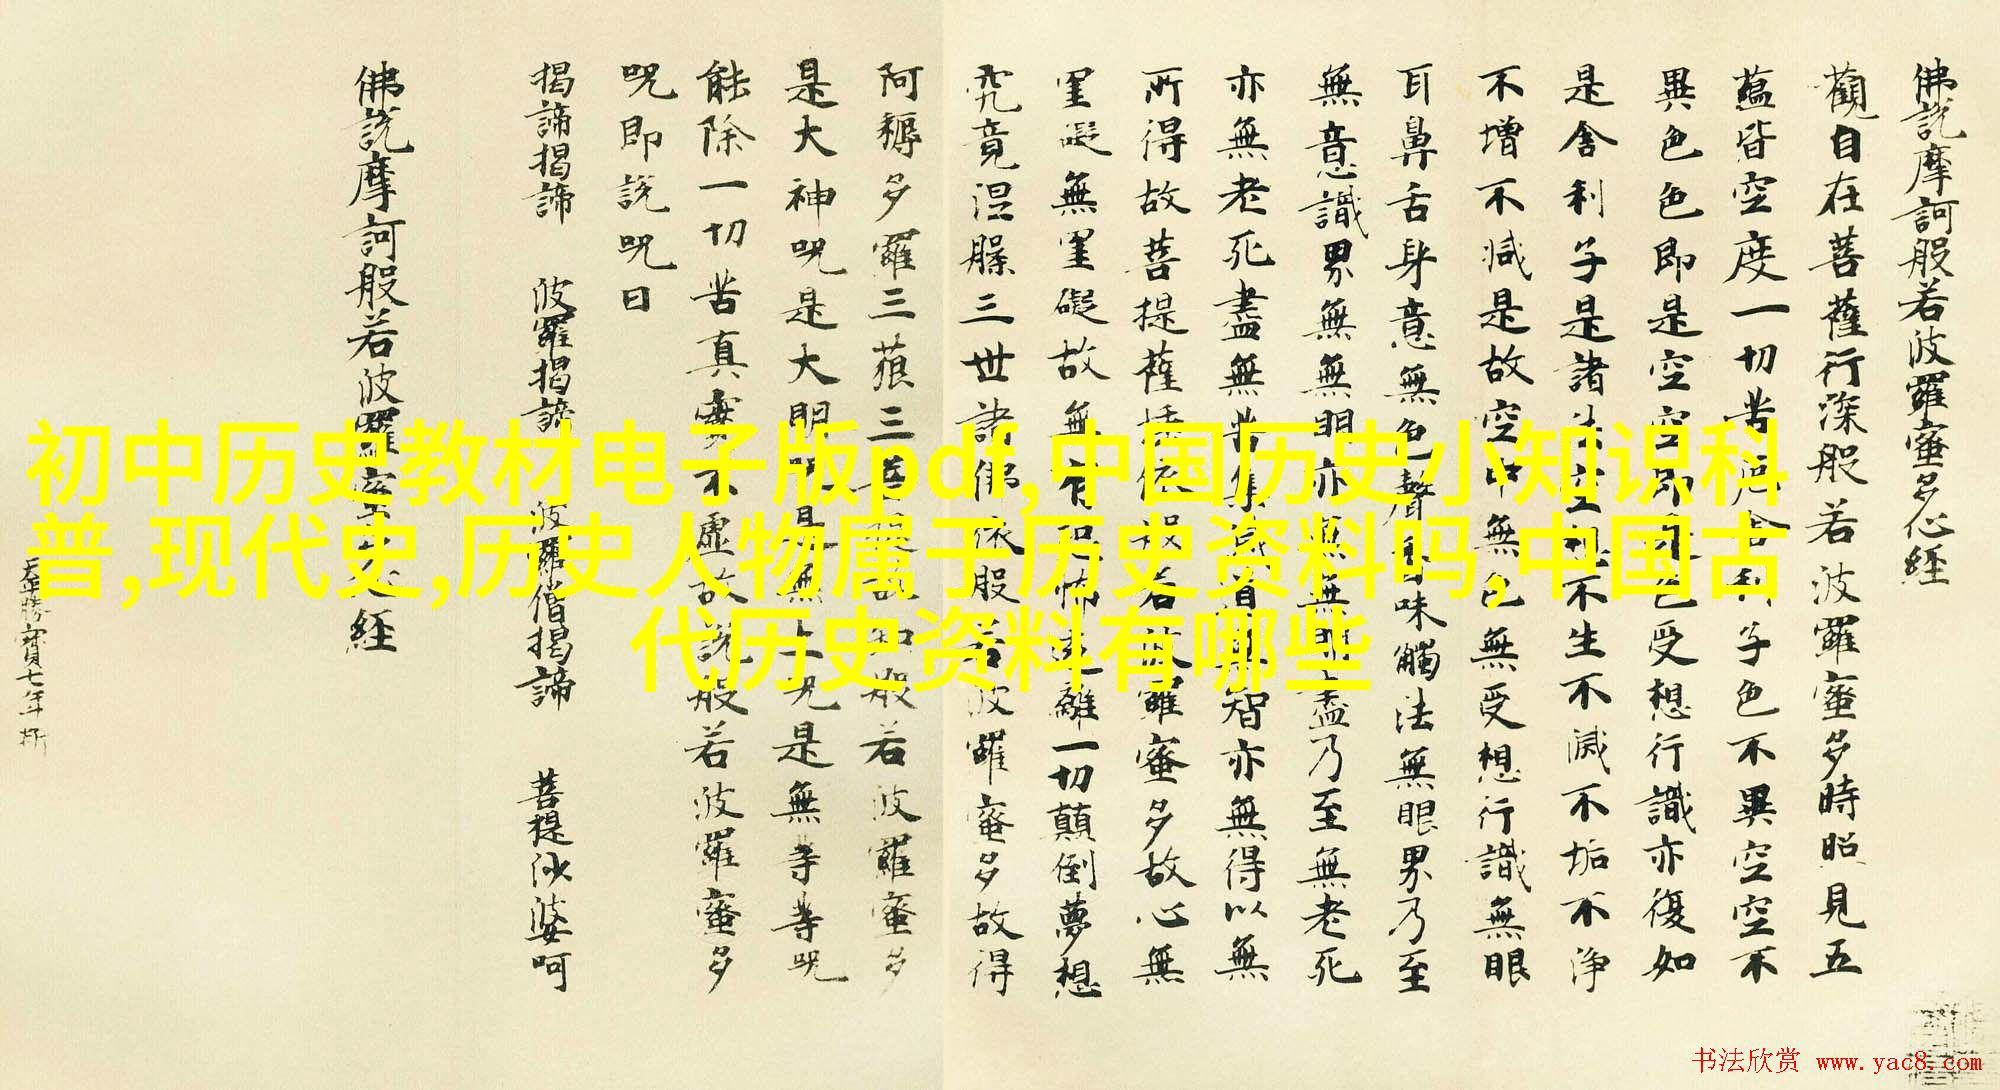 佛説摩訶般若波羅蜜多心經
觀自在菩薩行深般若波羅蜜多時照見五
蘊皆空度一切苦厄舍利子色不異空空不
異色色即是空空即是色受想行識亦復如
是舍利子是諸法空相不生不滅不垢不淨
不增不減是故空中無色無受想行識無眼
耳鼻舌身意無色聲香味觸法無眼界乃至
無意識界無無明亦無無明盡乃至無老死
亦無老死盡無苦集滅道無智亦無得以無
所得故菩提薩埵依般若波羅蜜多故心無
罣礙無罣礙故無有恐怖遠離一切顛倒夢想
究竟涅槃三世諸佛依般若波羅蜜多故得
阿耨多羅三藐三菩提故知般若波羅蜜多
是大神呪是大明呪是無上呪是無等等呪
能除一切苦真實不虛故説般若波羅蜜多
呪即説呪曰
揭諦揭諦 波羅揭諦 波羅僧揭諦 菩提沙婆呵
佛説摩訶般若波羅蜜多心經
初中历史教材电子版pdf,中国历史小知识科
普,现代史,历史人物属于历史资料吗,中国古
代历史资料有哪些
书法欣赏 www.yac8.com